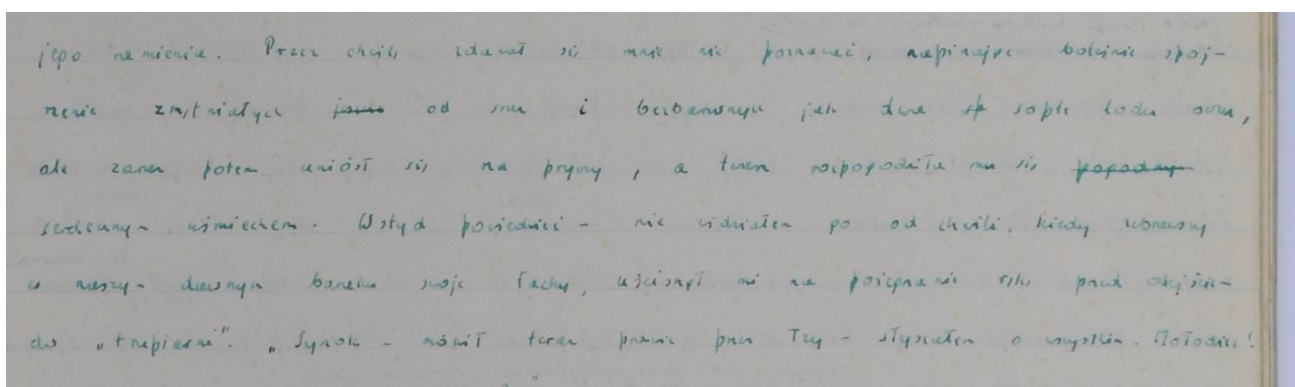 jego ramienia. Przez chwilę zdawał się mnie nie poznawać, napinając boleśnie spoj-
rzenie zmętniałych od snu i bezbarwnych jak dwa sople lodu oczu,
ale zaraz potem uniósł się na pryczy, a twarz rozpogodziła mu się pogodnym
serdecznym uśmiechem. Wstyd powiedzieć - nie widziałem go od chwili, kiedy zebrawszy
w naszym dawnym baraku swoje łachy, uścisnął mi na pożegnanie rękę przed odejściem
do „trupiarni". „Synok - mówił teraz prawie przez łzy - słyszałem o wszystkim. Mołodiec!